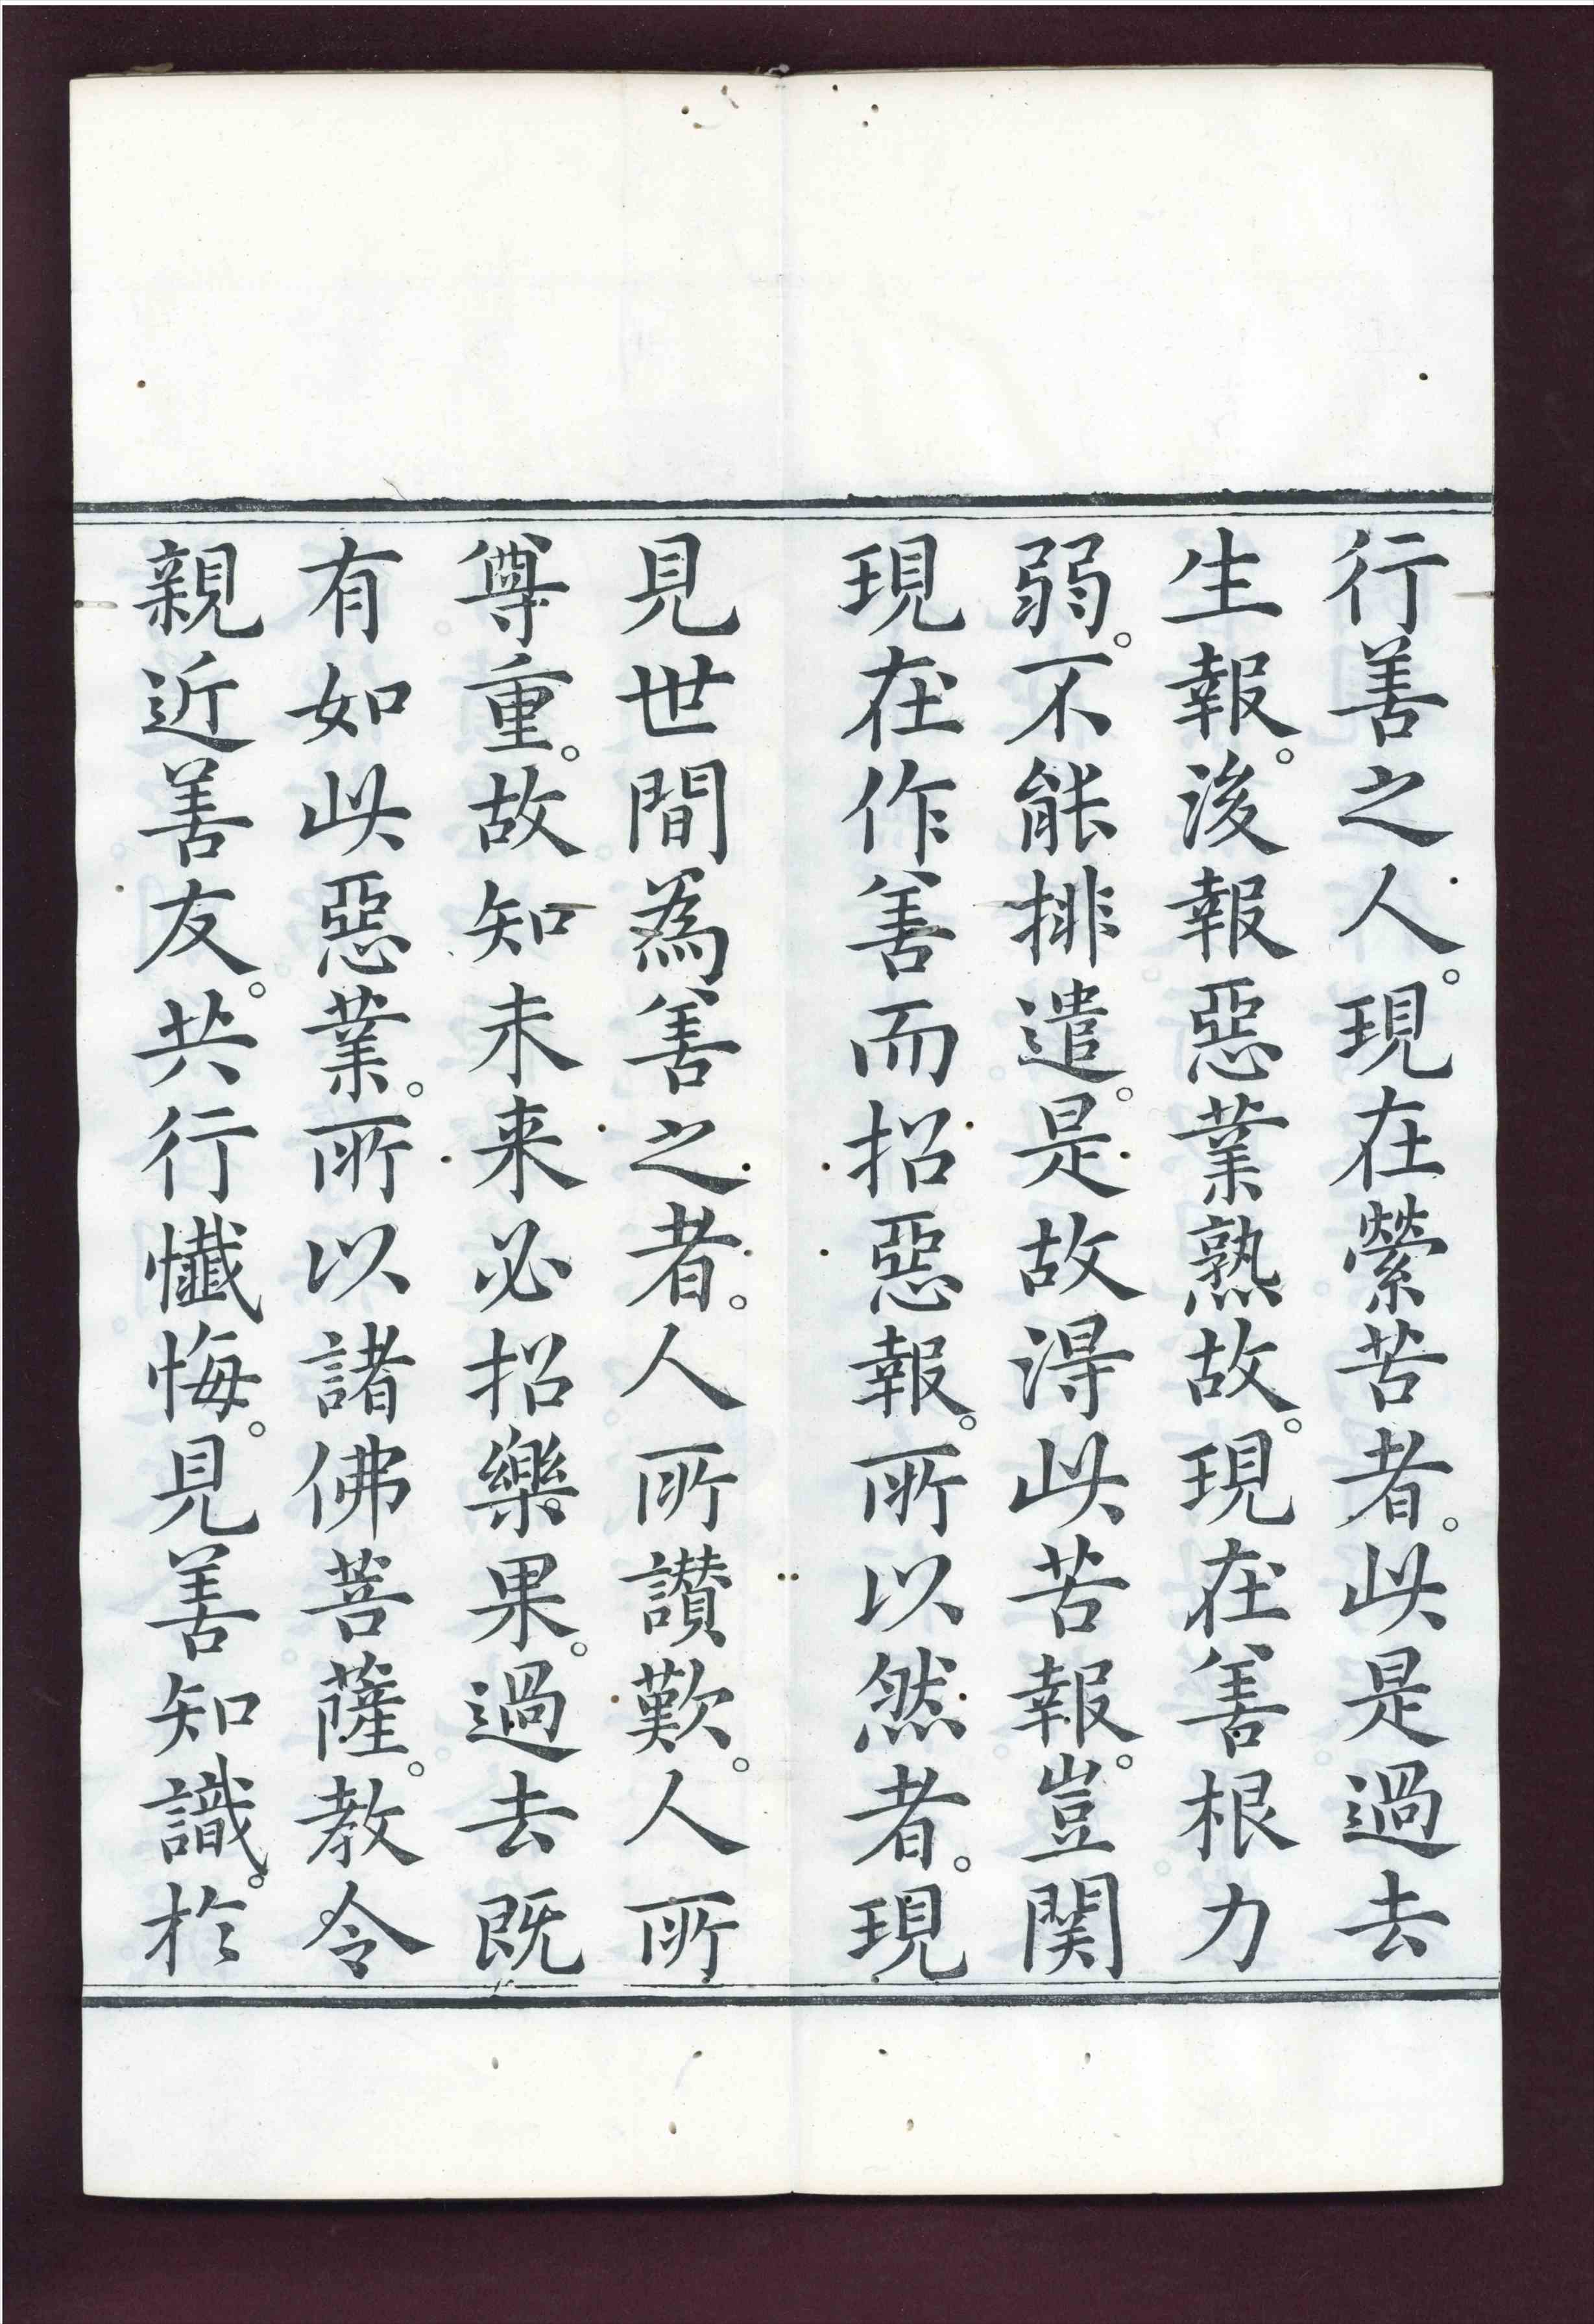 行善之人。現在縈苦者。此是過去
生報。後報惡業熟故。現在善根力
弱。不能排遣。是故得此苦報。豈関
現在作善而招惡報。所以然者。現
見世間為善之者。人所讃歎。人所
尊重。故知未来必招樂果。過去既
有如此惡業。所以諸佛菩薩。教令
親近善友。共行懺悔。見善知識。於